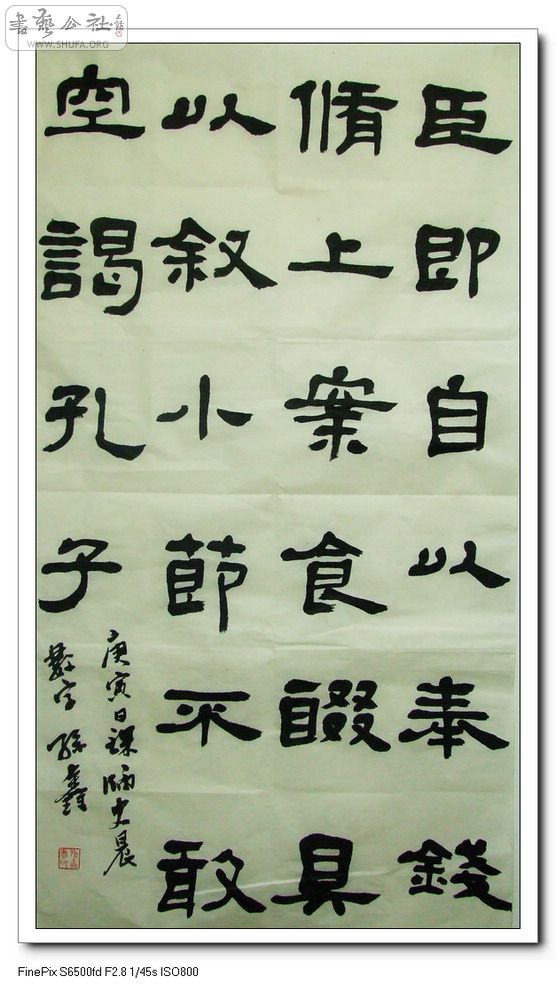 書藝公社
WWW.SHUFA.ORG
臣即自以奉錢
脩上案食醊具
以叙小節不敢
空謁孔子
庚寅日課臨史晨
數字 孫鑫
FinePix S6500fd F2.8 1/45s ISO800